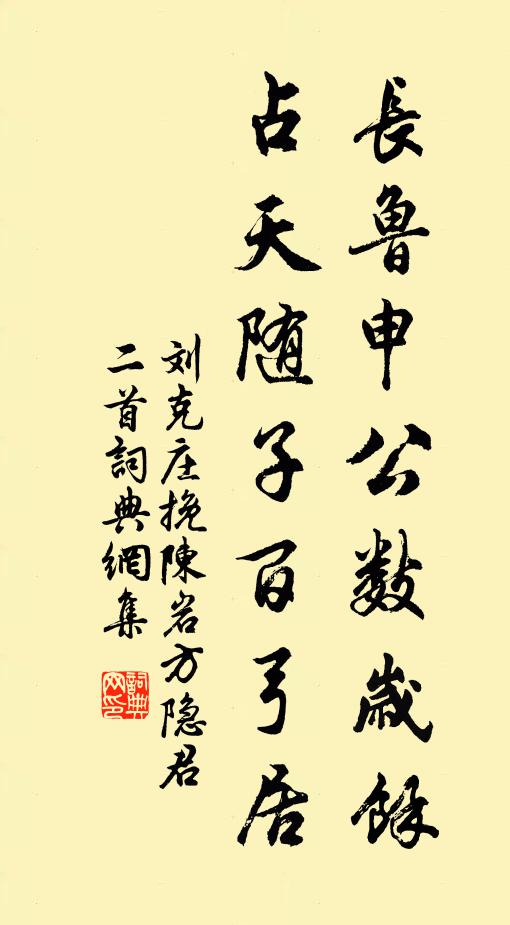 長魯申公數歲餘
占天随子百弓居
刘克庄挽陳岩方隐君
二首詞典網集
詞典
网印